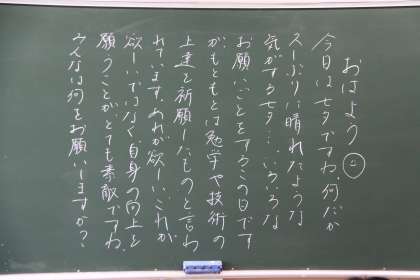 おはよう
今日は七夕ですね。何だか
久しぶりに晴れたような
気がする七夕…。いろいろな
お願いごとをするこの日です
がもともとは勉学や技術の
上達を祈願したものと言わ
れています。あれが欲しい、これが
欲しいではなく自身の向上を
願うことがとても素敵ですね。
みんなは何をお願いしますか？